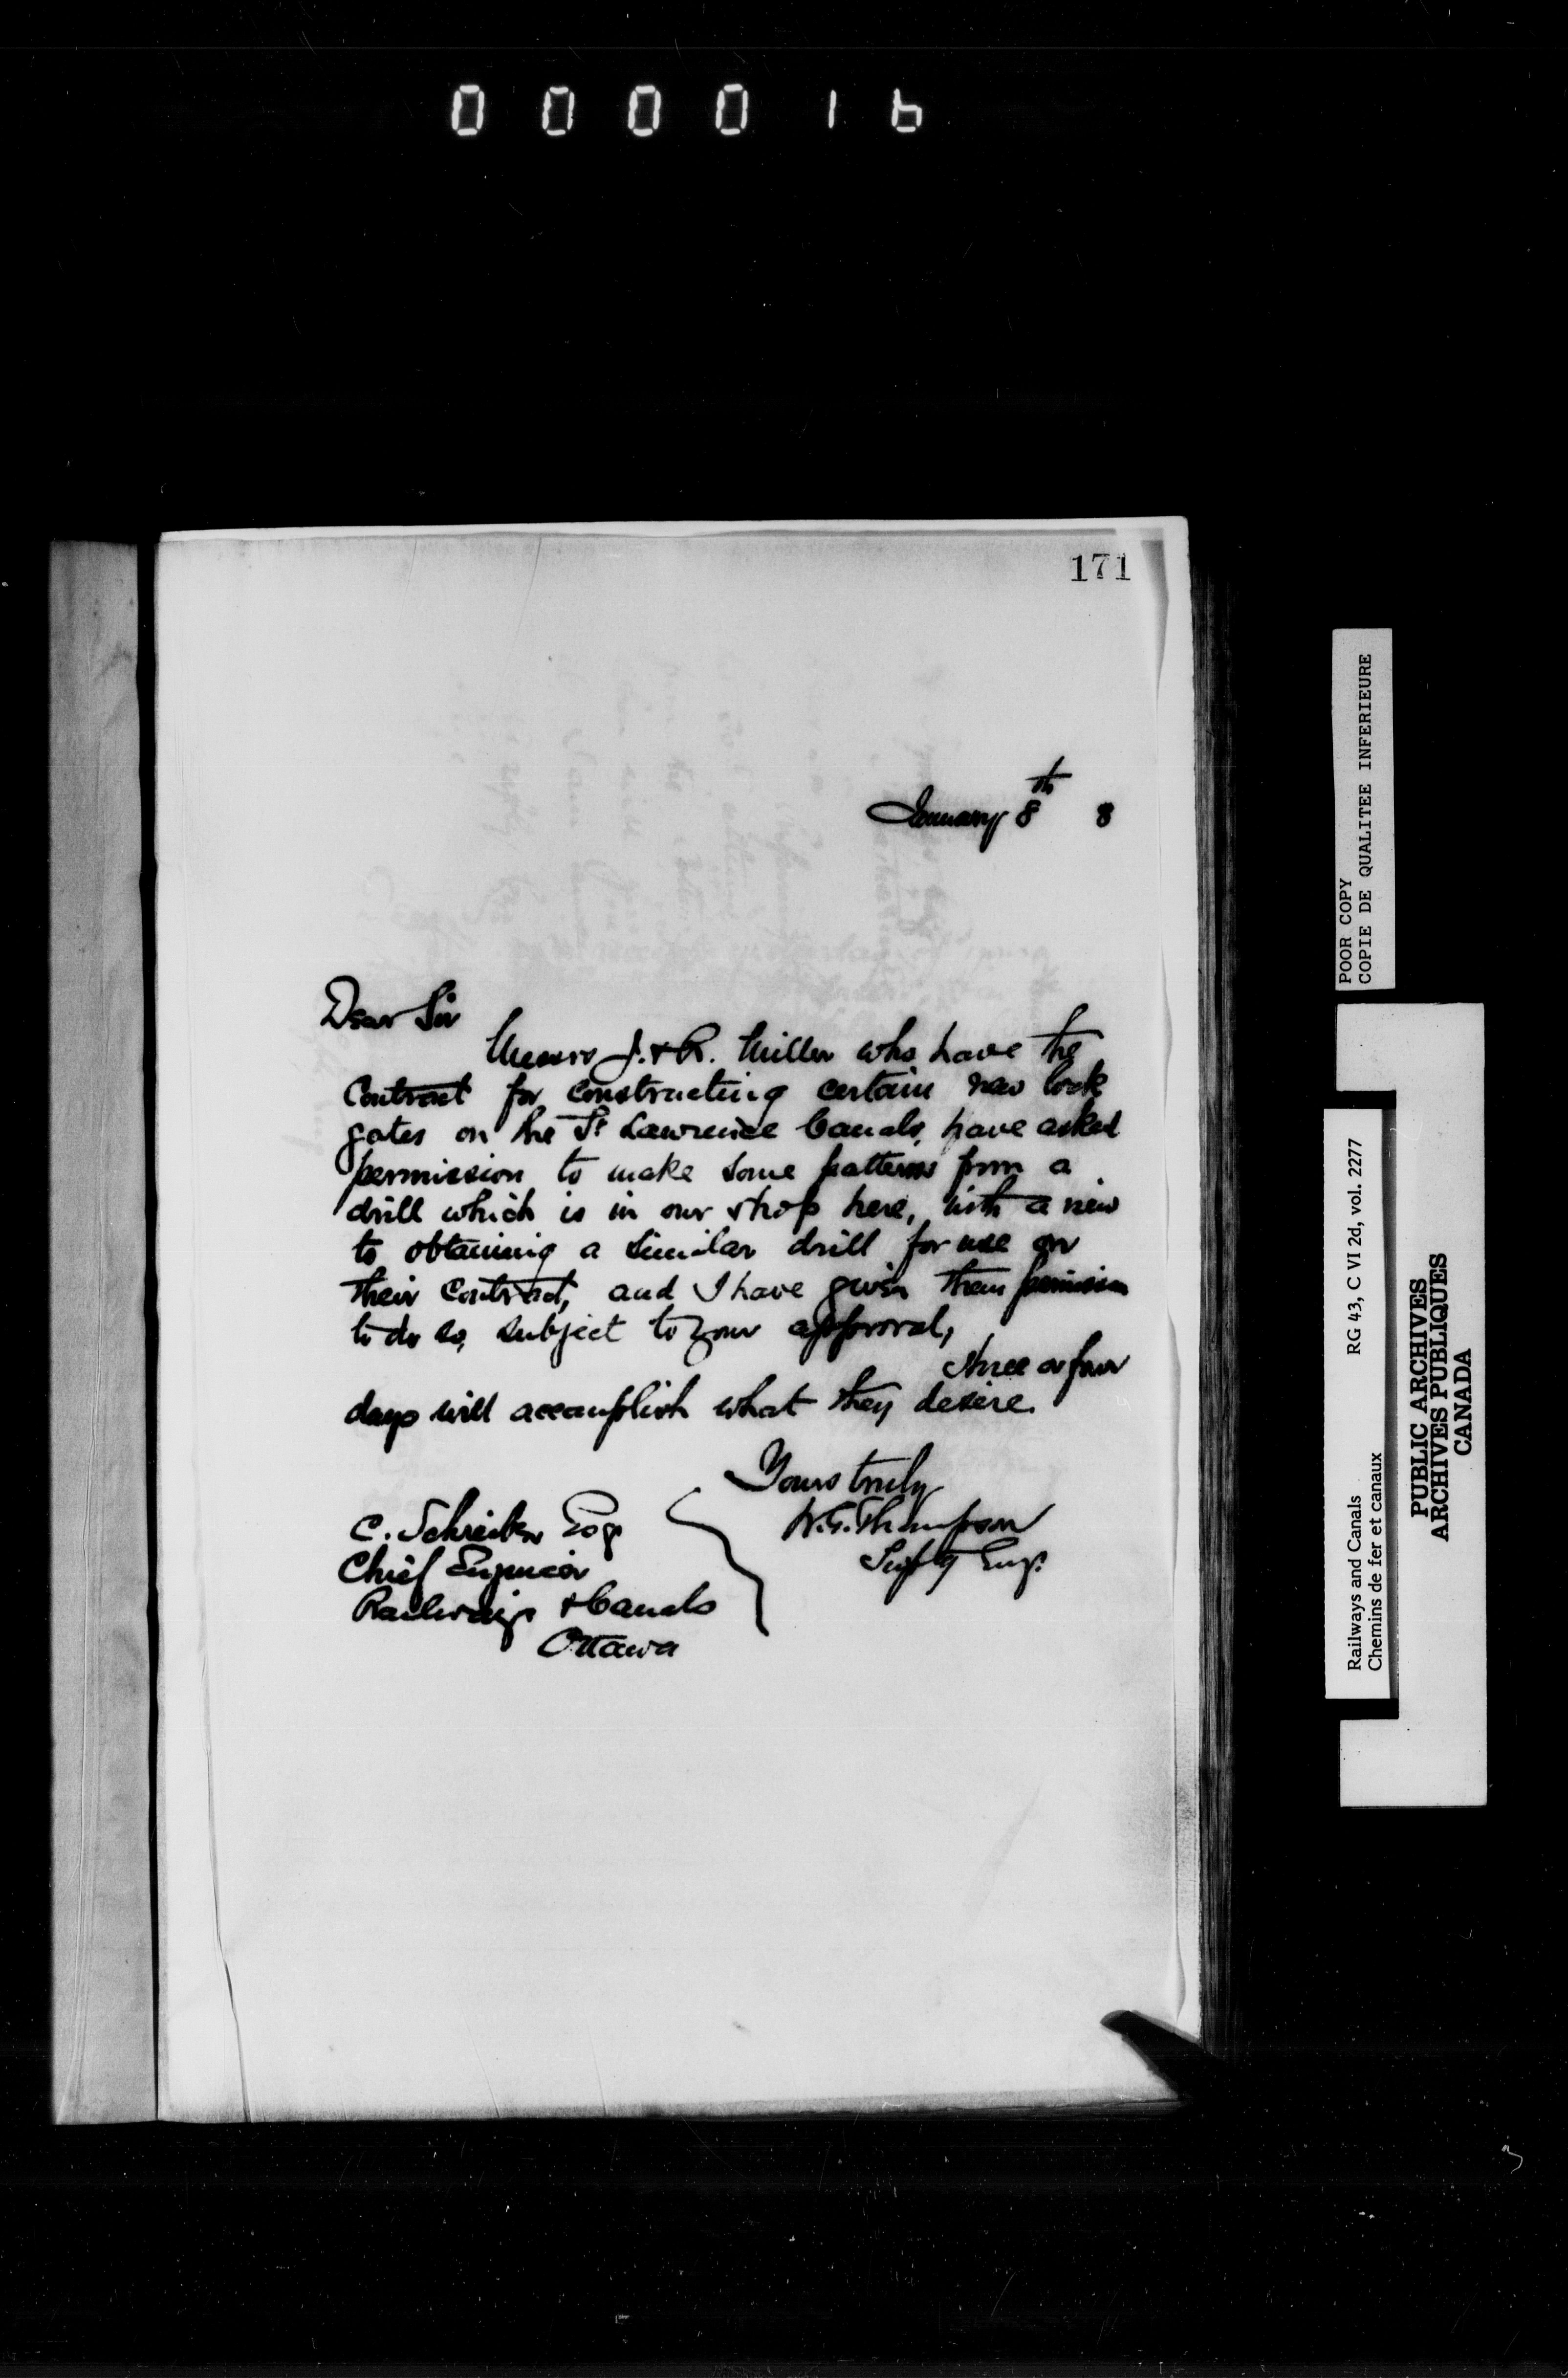 000016
171
January 8th 8
Dear Sir
Messrs J. & R. Miller who have the
Contract for constructing certain new lock
gates on the St Lawrence Canals, have asked
permission to make some patterns from a
drill which is in our shop here, with a view
to obtaining a similar drill for use on
their contract, and I have given them permission
to do so, subject to your approval,
three or four
days will accomplish what they desire.
Yours truly
W.G. Thompson
Supt'g Eng.
C. Schreiber Esq
Chief Engineer
Railways & Canals
Ottawa
POOR COPY
COPIE DE QUALITEE INFERIEURE
Railways and Canals RG 43, C VI 2d, vol. 2277
Chemins de fer et canaux
PUBLIC ARCHIVES
ARCHIVES PUBLIQUES
CANADA